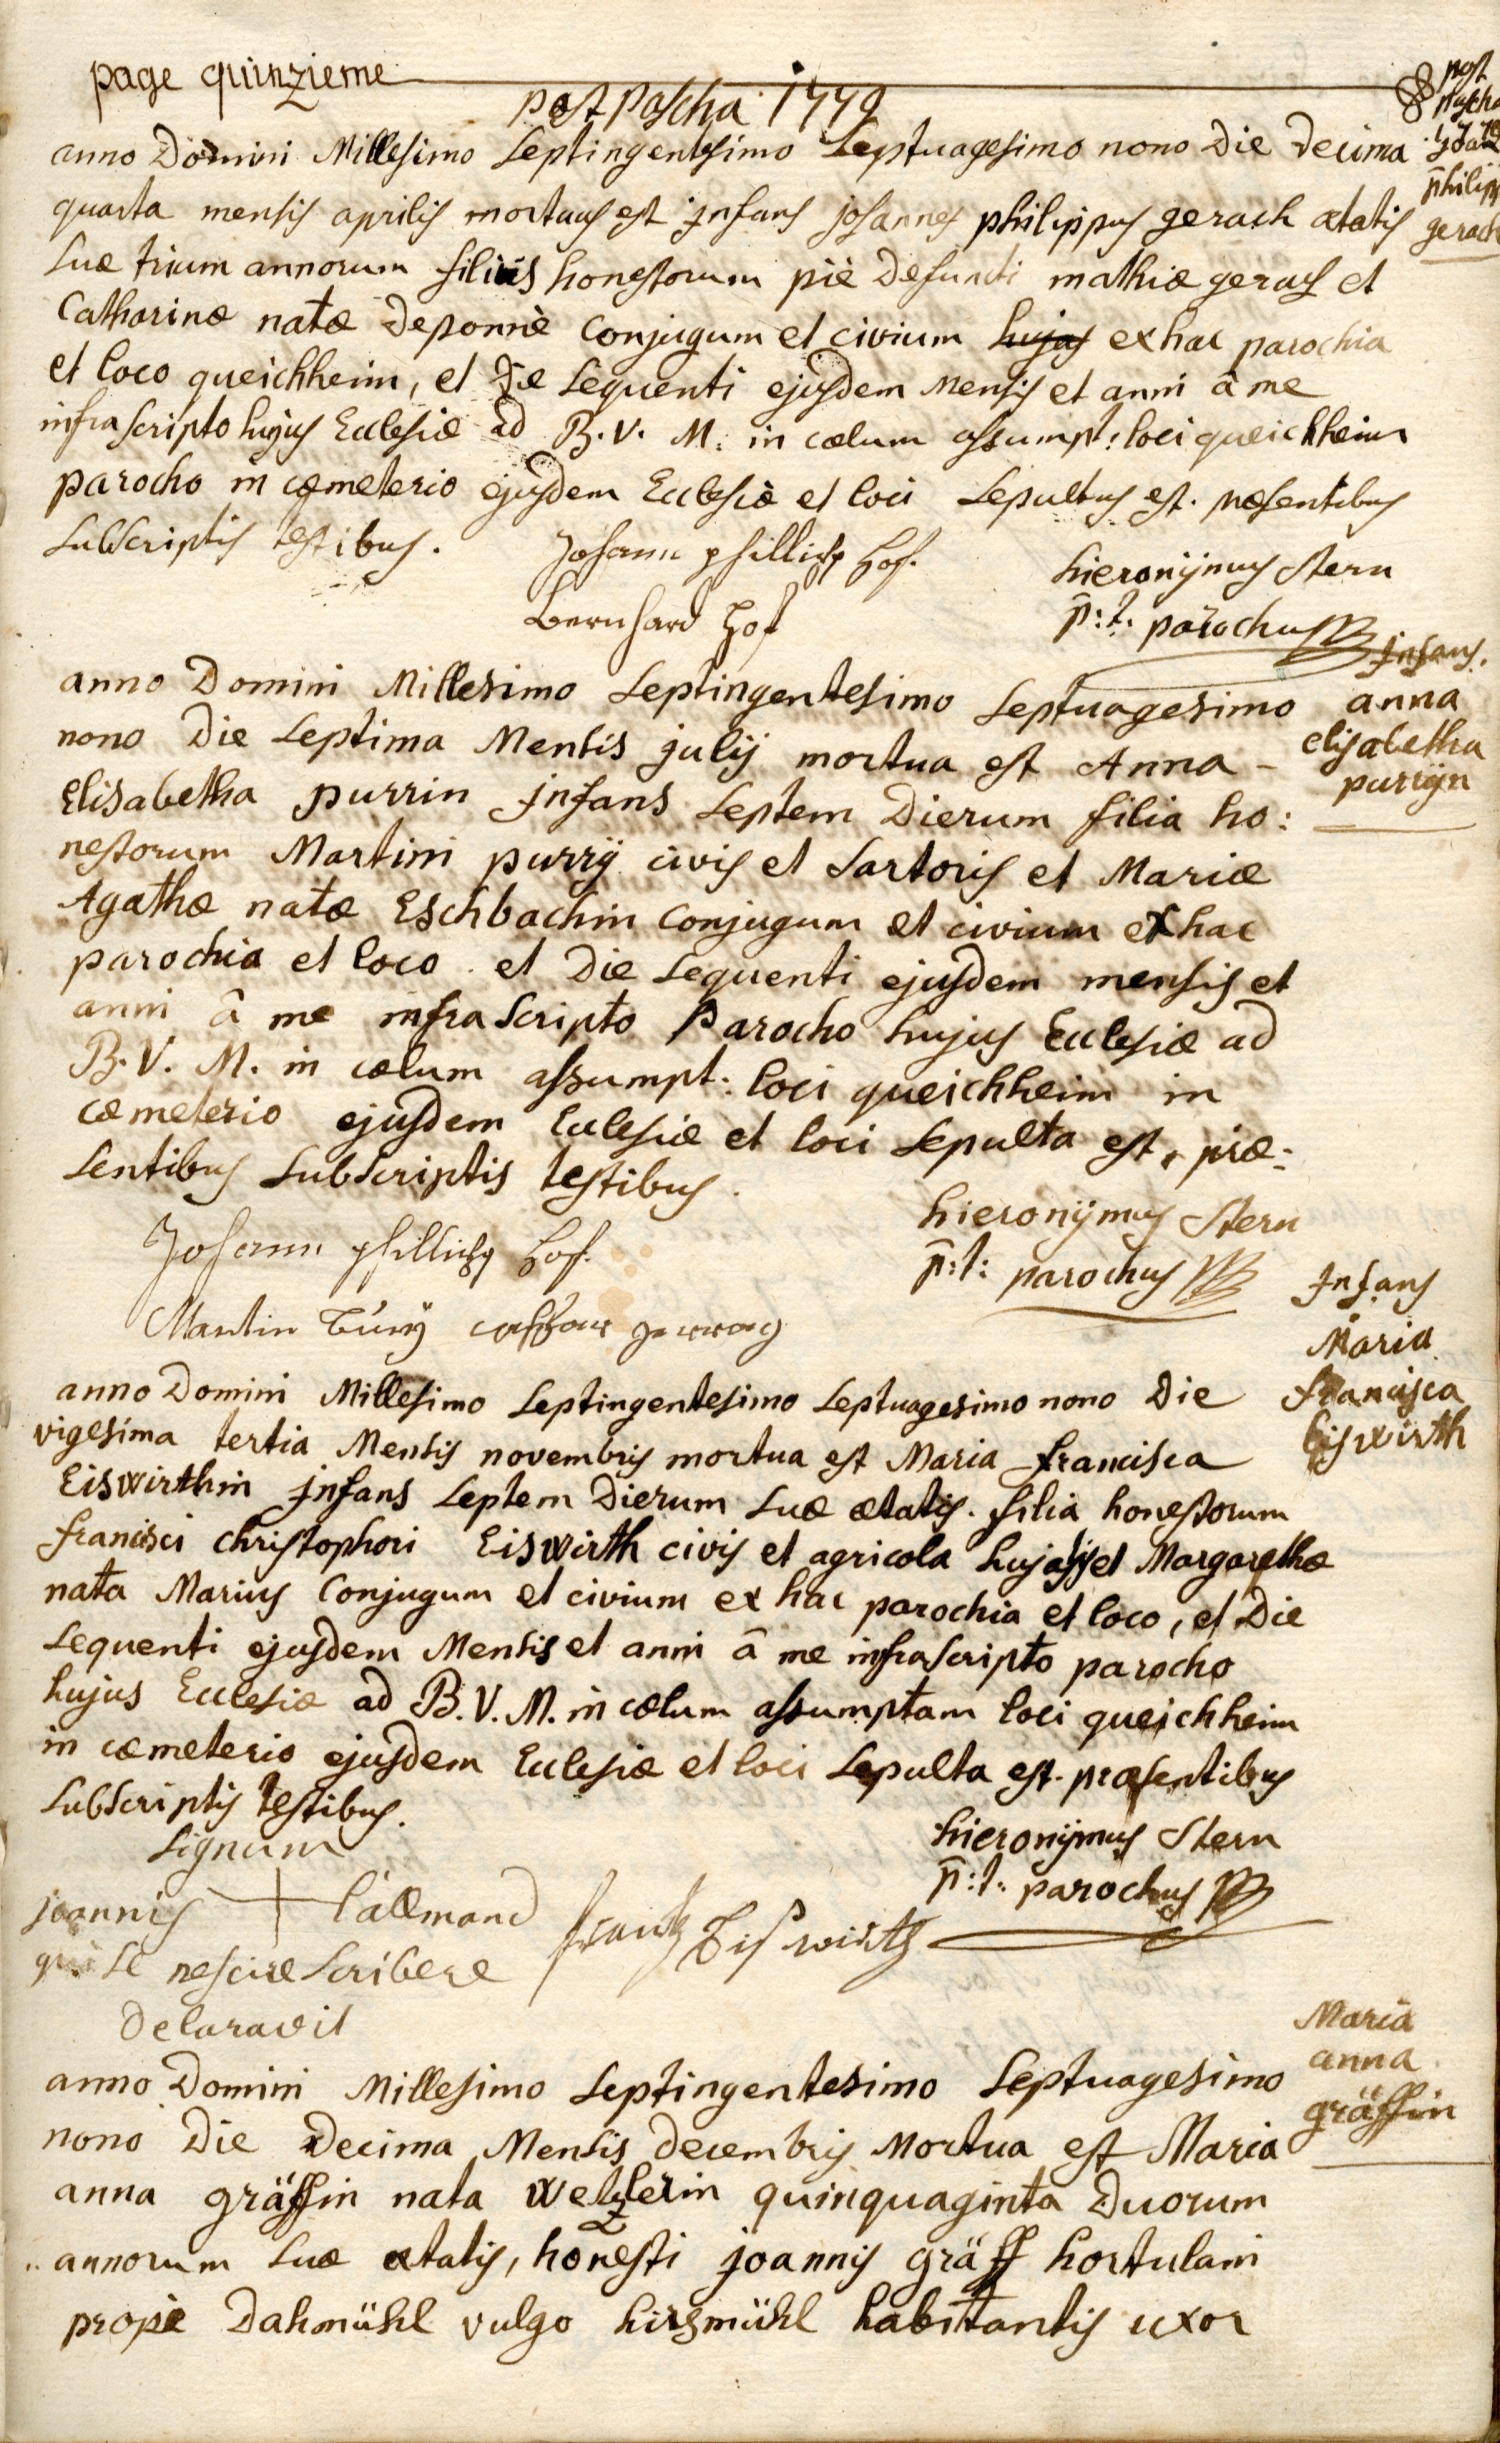 page quinzieme
post pascha 1779
post
pascha
1779
Joan
philipp
gerach
anno Domini Millesimo Septingentesimo Septuagesimo nono Die Decima
quarta mensis aprilis mortuus est jnfans johannes philippus gerach ætatis
suæ trium annorum filius honestorum piè defuncti mathiæ gerach et
Catharinæ natæ Deponnè Conjugum et civium hujas ex hac parochia
et loco queichheim, et Die sequenti ejusdem Mensis et anni â me
infra scripto hujus Ecclesiæ ad B. V. M. in cœlum assumpt: loci queichheim
parocho in cœmeterio ejusdem Ecclesiæ et loci Sepultus est. præsentibus
subscriptis testibus.
Johann phillipp Hof.
Bernhard Hof
hieronÿmus Stern
p: t. parochus
jnfans.
anna
elisabetha
purrÿn
anno Domini Millesimo Septingentesimo Septuagesimo
nono Die Septima Mensis julij mortua est Anna -
Elisabetha purrin jnfans Septem Dierum filia ho:
nestorum Martini purrÿ civis et Sartoris et Mariæ
Agathæ natæ Eschbachin Conjugum et civium ex hac
parochia et loco. et Die sequenti ejusdem mensis et
anni â me infra scripto Parocho hujus Ecclesiæ ad
B. V. M. in cœlum assumpt: loci queichheim in
cœmeterio ejusdem Ecclesiæ et loci Sepulta est, præ:
sentibus subscriptis testibus.
Johann phillipp Hof.
Martin
hieronÿmus Stern
p: t: parochus
jnfans
Maria
francisca
Eiswirth
anno Domini Millesimo Septingentesimo Septuagesimo nono Die
vigesima tertia Mensis novembris mortua est Maria francisca
Eiswirthin jnfans Septem Dierum suæ ætatis. filia honestorum
francisci christophori Eiswirth civis et agricola hujatis et Margarethæ
nata Marius Conjugum et civium ex hac parochia et loco, et Die
sequenti ejusdem Mensis et anni â me infra scripto parocho
hujus Ecclesiæ ad B. V. M. in cœlum assumptam loci queichheim
in cœmeterio ejusdem Ecclesiæ et loci Sepulta est. præsentibus
subscriptis testibus.
Signum
joannis + l'allmand
qui se nescire scribere
Delaravit
frantz Eiswirth
hieronÿmus Stern
p: t. parochus
Maria
anna
gräffin
anno Domini Millesimo Septingentesimo Septuagesimo
nono Die Decima Mensis Decembris Mortua est Maria
anna gräffin nata Welzlerin quinquaginta Duorum
annorum suæ ætatis, honesti joannis gräff hortulani
propè Dahmühl vulgo hirsmühl habitantis uxor